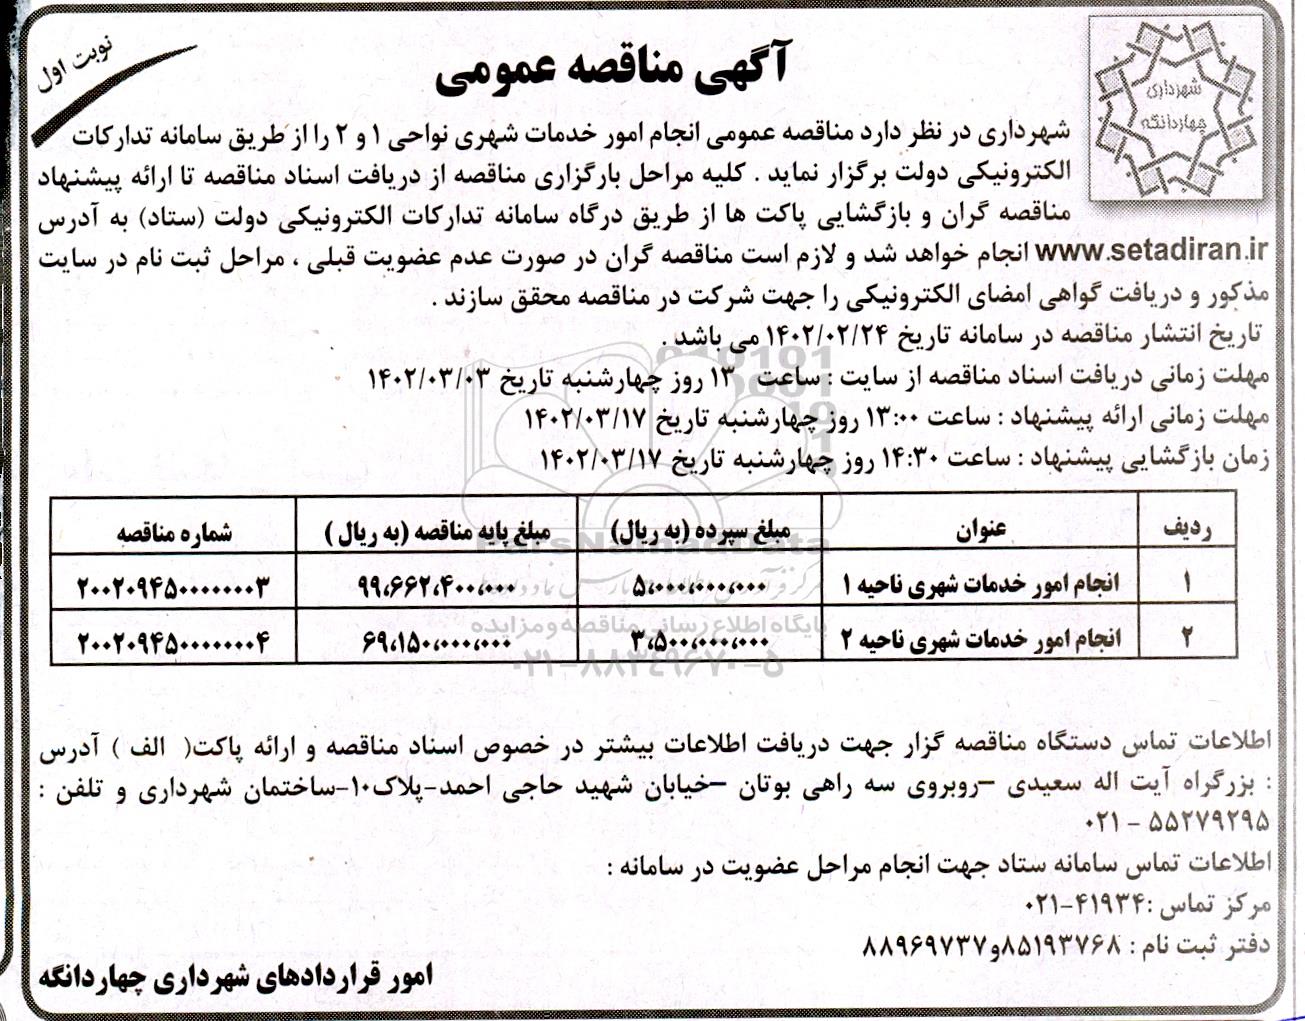 نوبت اول
شهرداری
چهاردانگه
آگهی مناقصه عمومی
شهرداری در نظر دارد مناقصه عمومی انجام امور خدمات شهری نواحی ۱ و ۲ را از طریق سامانه تدارکات
الکترونیکی دولت برگزار نماید . کلیه مراحل بارگزاری مناقصه از دریافت اسناد مناقصه تا ارائه پیشنهاد
مناقصه گران و بازگشایی پاکت ها از طریق درگاه سامانه تدارکات الکترونیکی دولت (ستاد) به آدرس
www.setadiran.ir انجام خواهد شد و لازم است مناقصه گران در صورت عدم عضویت قبلی ، مراحل ثبت نام در سایت
مذکور و دریافت گواهی امضای الکترونیکی را جهت شرکت در مناقصه محقق سازند .
تاریخ انتشار مناقصه در سامانه تاریخ ۱۴۰۲/۰۲/۲۴ می باشد .
مهلت زمانی دریافت اسناد مناقصه از سایت : ساعت ۱۳ روز چهارشنبه تاریخ ۱۴۰۲/۰۳/۰۳
مهلت زمانی ارائه پیشنهاد : ساعت ۱۳:۰۰ روز چهارشنبه تاریخ ۱۴۰۲/۰۳/۱۷
زمان بازگشایی پیشنهاد : ساعت ۱۴:۳۰ روز چهارشنبه تاریخ ۱۴۰۲/۰۳/۱۷
ردیف عنوان مبلغ سپرده (به ریال) مبلغ پایه مناقصه (به ریال ) شماره مناقصه
۱ انجام امور خدمات شهری ناحیه ۱ ۵،۰۰۰،۰۰۰،۰۰۰ ۹۹،۶۶۲،۴۰۰،۰۰۰ ۲۰۰۲۰۹۴۵۰۰۰۰۰۰۰۳
۲ انجام امور خدمات شهری ناحیه ۲ ۳،۵۰۰،۰۰۰،۰۰۰ ۶۹،۱۵۰،۰۰۰،۰۰۰ ۲۰۰۲۰۹۴۵۰۰۰۰۰۰۰۴
ParsNamadData
پایگاه اطلاع رسانی مناقصه و مزایده
۰۲۱-۸۸۳۴۹۶۷۰-۵
اطلاعات تماس دستگاه مناقصه گزار جهت دریافت اطلاعات بیشتر در خصوص اسناد مناقصه و ارائه پاکت( الف ) آدرس
: بزرگراه آیت اله سعیدی –روبروی سه راهی بوتان –خیابان شهید حاجی احمد-پلاک۱۰-ساختمان شهرداری و تلفن :
۵۵۲۷۹۲۹۵ – ۰۲۱
اطلاعات تماس سامانه ستاد جهت انجام مراحل عضویت در سامانه :
مرکز تماس :۴۱۹۳۴-۰۲۱
دفتر ثبت نام : ۸۵۱۹۳۷۶۸و۸۸۹۶۹۷۳۷
امور قراردادهای شهرداری چهاردانگه